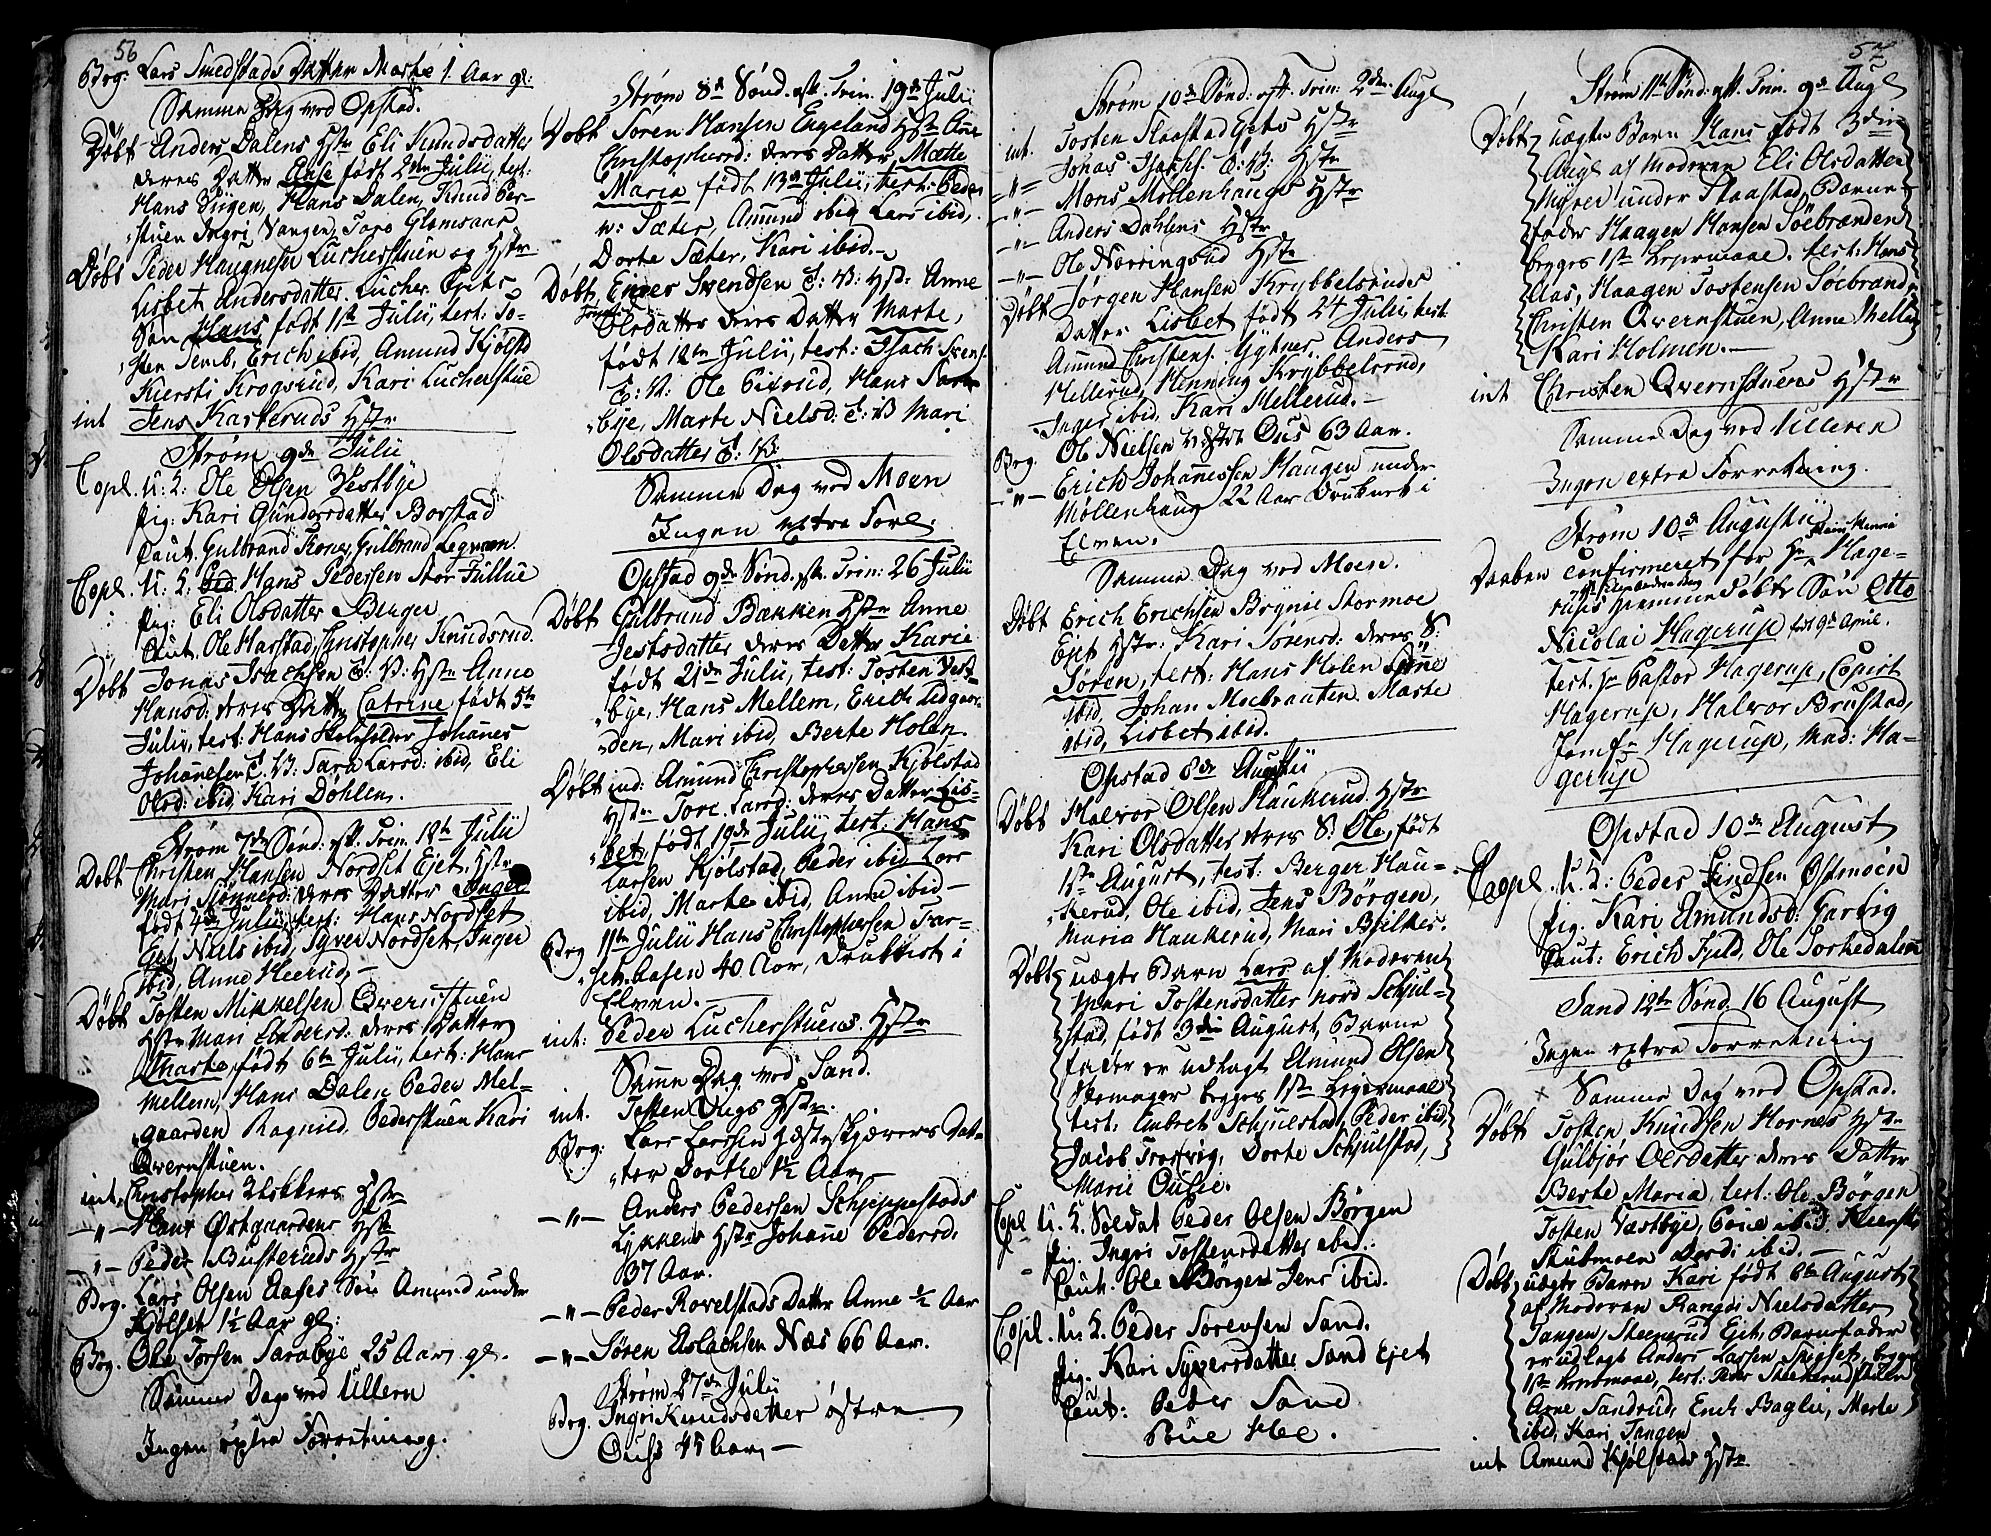 56
Beg. Lars Smedstads Datter Marte 1 Aar gl:
Samme Dag ved Opstad.
Døbt Anders Dalens Hstr Eli Knudsdatter
deres Datter Aase født 2den Julii, test:
Hans Hans Dalen, Knud Per-
stuen Ingri Vangen, Goro Glomsaas
Døbt Peder Haagnesen Lucherstuen og Hstr
Lisbet Andersdatter Lucher Ejets
Søn Hans født 11te Julii, test: To-
sten Semb, Erich ibid, Amund Kjølst
Kiersti Krogsrud, Kari Lucherstue
int Jens Kasteruds Hstr
Strøm 9de Julii
Copl. U: K: Ole Olsen Vestbye
Pig: Kari Gundersdatter Borstad
Caut. Gulbrand Gulbrand Legræen.
Copl. U: K: Hans Pedersen Stor Jullue
Pig: Eli Olsdatter Berger
Caut. Ole Harstad, Christopher Knudsrud.
Døbt Jonas Isachsen E: V: Hstr Anne
Hansd: deres Datter Catrine født 5te
Julii, test: Hans Johanes
Johanesen E. V: Sara Larsd: ibid, Eli
Olsd: ibid, Kari Dohlen.
Strøm 7de Sønd: eft. Trin. 12te Julii
Døbt Christen Hansen Nordset Ejet Hstr
Mari deres Datter Inger
født 4de Julii, test: Hans Nordset
Ejet, Niels ibid, Syver Nordset, Inger
ibid, Anne Heerud -
Døbt Tosten Mikkelsen Qvernstuen
Hstr Mari Andersd: deres Datter
Marte født 6te Julii, test: Hans
Mellem, Hans Dalen Peder Mel-
gaarden Ragnild Pederstuen Kari
Qvernstuen.
int. Christopher Klokkers Hstr
-"- Hans Østgaardens Hstr
-"- Peder Busteruds Hstr
Beg. Lars Olsen Aases Søn Amund under
Kjølset 1½ Aar gl:
Beg. Ole Torsen Sarabye 25 Aar gl.
Samme Dag ved Ullern
Ingen extra Forretning.
Strøm 8de Sønd. eft. Trin. 19de Julii
Døbt Søren Hansen Engeland Hstr Anne
Christophersd: deres Datter Mætte
Maria født 13de Julii, test: Peder
N: Sæter, Amund ibid Lars ibid,
Dorte Sæter, Kari ibid. -
Døbt Einer Svendsen E: V: Hstr Anne
Olsdatter deres Datter Marte,
født 12te Julii, test: Isach Svens.
E: V: Ole Hans
bye, Marte Nielsd. E: V: Mari
Olsdatter E: V:
Samme Dag ved Moen
Ingen extra Forr:
Opstad 9de Sønd. eft. Trin: 26 Julii
Døbt Gulbrand Bækken Hstr Anne
Jertsdatter deres Datter Karie
født 21de Julii, test: Tosten Vest-
bye, Hans Mellem, Erich Lidgaar-
den, Mari ibid, Berte Holen.
Døbt ind: Amund Christophersen Kjølstad
Hstr Tore Larsd: deres Datter Lis-
bet, født 19de Julii, test. Hans
Larsen Kjølstad, Peder ibid Lars
ibid, Marte ibid, Anne ibid -
Beg 11te Julii Hans Christophersen Tar-
aasen 40 Aar, Druknet i
Elven. -
int: Peder Lucherstuens Hstr
Samme Dag ved Sand.
int. Tosten Ungs Hstr.
Beg: Lars Larsen Hæsteskjærers Dat-
ter Dorthe ½ Aar. -
-"- Anders Pedersen Schjeppestads
Lykkens Hstr Johane Pedersd.
37 Aar.
-"- Peder Rovelstads Datter Anne ½ Aar
-"- Søren Aslachsen Næs 66 Aar.
Strøm 27de Julii
Beg. Ingri Knudsdatter østre
Ouse 45 Aar. -
57
Strøm 10de Sønd: eft. Trin: 2den Augl
int. Tosten Slaastad Ejets Hstr
-"- Jonas Isachs. E: V: Hstr
-"- Mons Møllenhaugs Hstr
-"- Anders Dahlens Hstr
-"- Ole Norringsrud Hstr
Døbt Jørgen Hansen Krybbelsruds
Datter Lisbet født 24 Julii, test:
Amund Christens. Anders
Hellerud, Henning Krybbelsrud,
Inger ibid, Kari Hellerud. -
Beg. Ole Nielsen Vestre Ous 63 Aar.
-"- Erich Johannessen Haugen under
Møllenhaug 22 Aar Druknet i
Elven.
Samme Dag ved Moen.
Døbt Erich Erichsen Brynie Stormoe
Ejet Hstr: Kari Sørensd: deres S:
Søren, test: Hans Holen
ibid, Johan Moebraaten. Marte
ibid, Lisbet ibid.
Opstad 8de Augustii
Døbt Halvor Olsen Haukerud Hstr
Kari Olsdatter deres S: Ole, født
1ste August, test: Berger Hau-
kerud, Ole ibid, Jens Børgen,
Maria Haukerud, Mari
Døbt uægte Barn Lars af Moderen
Mari Tostensdatter nord Schjul-
stad, født 3die August, Barne
fader er udlagt Amund Olsen
Skomager begges 1ste Lejermaal
test: Anbret Schjulstad, Peder ibid,
Jacob Trosvig, Dorte Schjulstad,
Marie Ousie.
Copl U. K. Soldat Peder Olsen Børgen
Pig. Ingri Tostensdatter ibid.
Caut. Ole Børgen Jens ibid.
Copl. U. K. Peder Sørensen Sand.
Pig. Kari Syversdatter Sand Ejet
Caut: Peder Sand
Poue Hee.
Strøm 11te Sønd: eft. Trin. 9de Augl
Døbt uægte Barn Hans født 3die
Augl af Moderen Eli Olsdatter
Myrer under Slaastad, Barne
fader Haagen Hansen Søebrænden
begges 1ste Lejermaal. test: Hans
Aas, Haagen Tostensen Søebrænd
Christen Qvernstuen, Anne Mellem
Kari Holmen. -
int Christen Qvernstuens Hstr
Samme Dag ved Ulleren
Ingen extra Forretning.
Strøm 10de Augustii
Daaben confirmeret for Hr Hage-
rups hjemmedøbte Søn Otto
Nicolai Hagerup født 9de April.
test. Hr Pastor Hagerup, Copist
Hagerup, Halvor Brustad,
Jomfr Hagerup, Mad: Ha-
gerup
Opstad 10de August
Copl. U. K: Peder Findsen Østmoen
Pig. Kari Amundsd: Garvig
Caut: Erich Fjeld, Ole Torkedalen
Sand 12te Sønd 16 August
Ingen extra Forretning
x Samme Dag ved Opstad.
Døbt Tosten Knudsen Hornes Hstr
Gulbjør Olsdatter deres Datter
Berte Maria, test: Ole Børgen
Tosten Vestbye, Poue ibid, Kiersti
Skubmoen Dordi ibid. -
Døbt uægte Barn Kari født 6te August
af Moderen Rangdi Nielsdatter
Tangen, Steenerud Ejet, Barnefader
er udlagt Anders Larsen begges
1ste Lejermaal, test: Peder Steenerud
Arne Sandrud, Erich Baglie, Marte
ibid, Kari Tangen
int Amund Kjølstads Hstr